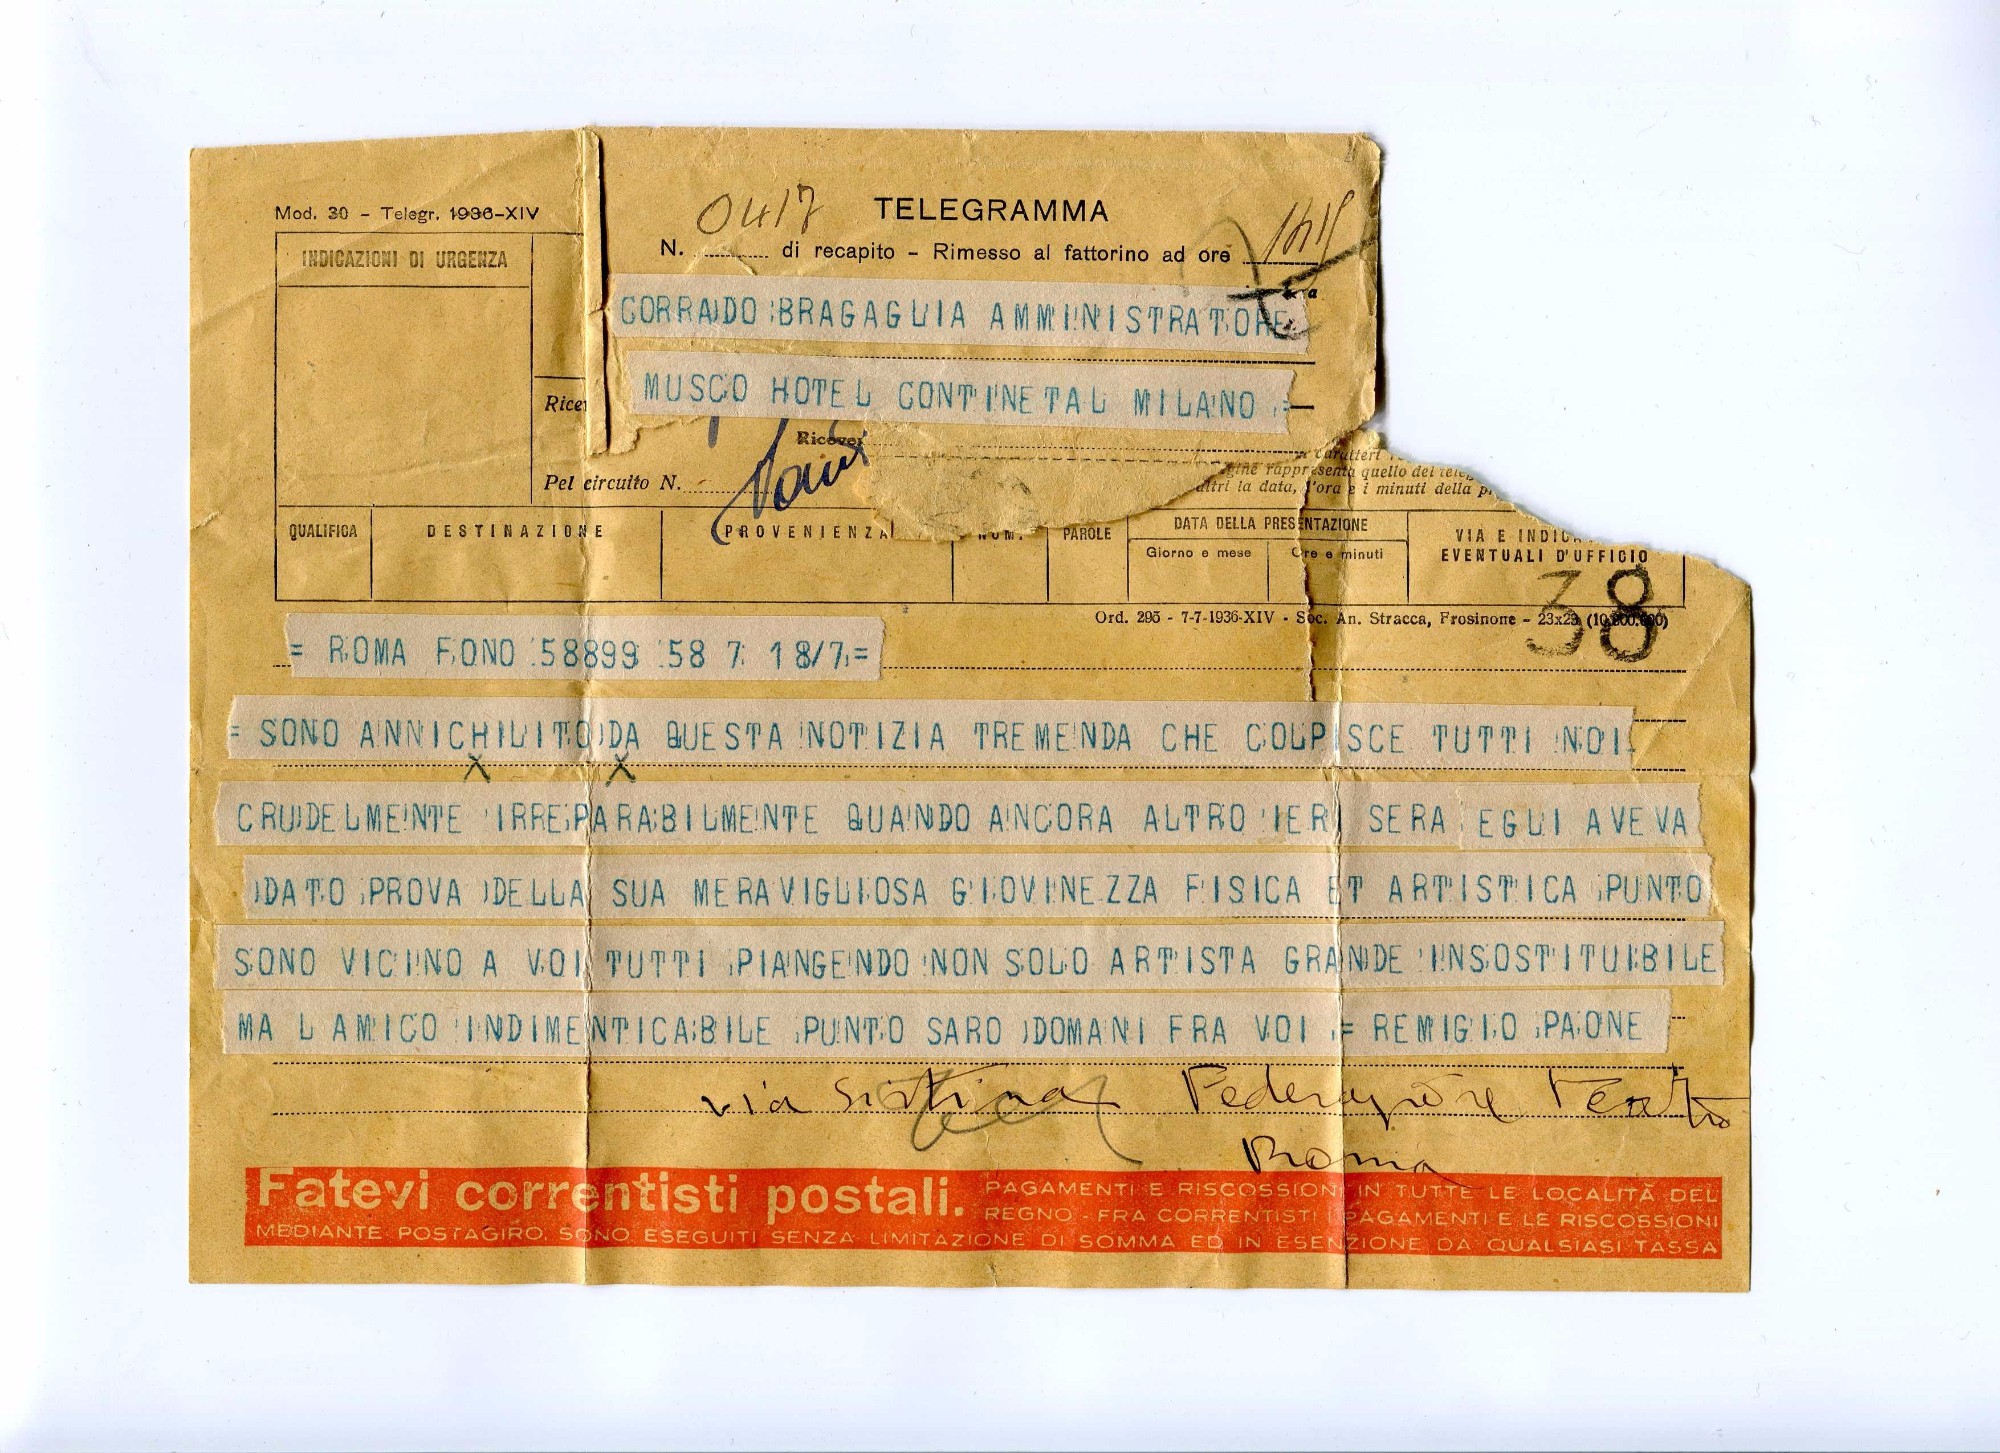 Mod. 30 – Telegr. 1936–XIV
TELEGRAMMA
0417
N. di recapito – Rimesso al fattorino ad ore
INDICAZIONI DI URGENZA
CORRADO BRAGAGLIA AMMINISTRATORE
MUSCO HOTEL CONTINETAL MILANO =
Ricev
Ricever
caratteri
gine rappresenta quello del tele
altri la data, l'ora e i minuti della p
Pel circuito N.
QUALIFICA DESTINAZIONE PROVENIENZA NUM. PAROLE DATA DELLA PRESENTAZIONE VIA E INDIC
Giorno e mese Ore e minuti EVENTUALI D'UFFICIO
38
Ord. 295 - 7-7-1936-XIV - Soc. An. Stracca, Frosinone - 23x23
= ROMA FONO 58899 58 7 18/7 =
= SONO ANNICHILITO DA QUESTA NOTIZIA TREMENDA CHE COLPISCE TUTTI NOI
X X
CRUDELMENTE IRREPARABILMENTE QUANDO ANCORA ALTRO IERI SERA EGLI AVEVA
DATO PROVA DELLA SUA MERAVIGLIOSA GIOVINEZZA FISICA ET ARTISTICA PUNTO
SONO VICINO A VOI TUTTI PIANGENDO NON SOLO ARTISTA GRANDE INSOSTITUIBILE
MA L AMICO INDIMENTICABILE PUNTO SARO DOMANI FRA VOI = REMIGIO PAONE
via Sistina Federazione Teatro
Roma
Fatevi correntisti postali. PAGAMENTI E RISCOSSIONI IN TUTTE LE LOCALITÀ DEL
REGNO - FRA CORRENTISTI I PAGAMENTI E LE RISCOSSIONI
MEDIANTE POSTAGIRO, SONO ESEGUITI SENZA LIMITAZIONE DI SOMMA ED IN ESENZIONE DA QUALSIASI TASSA